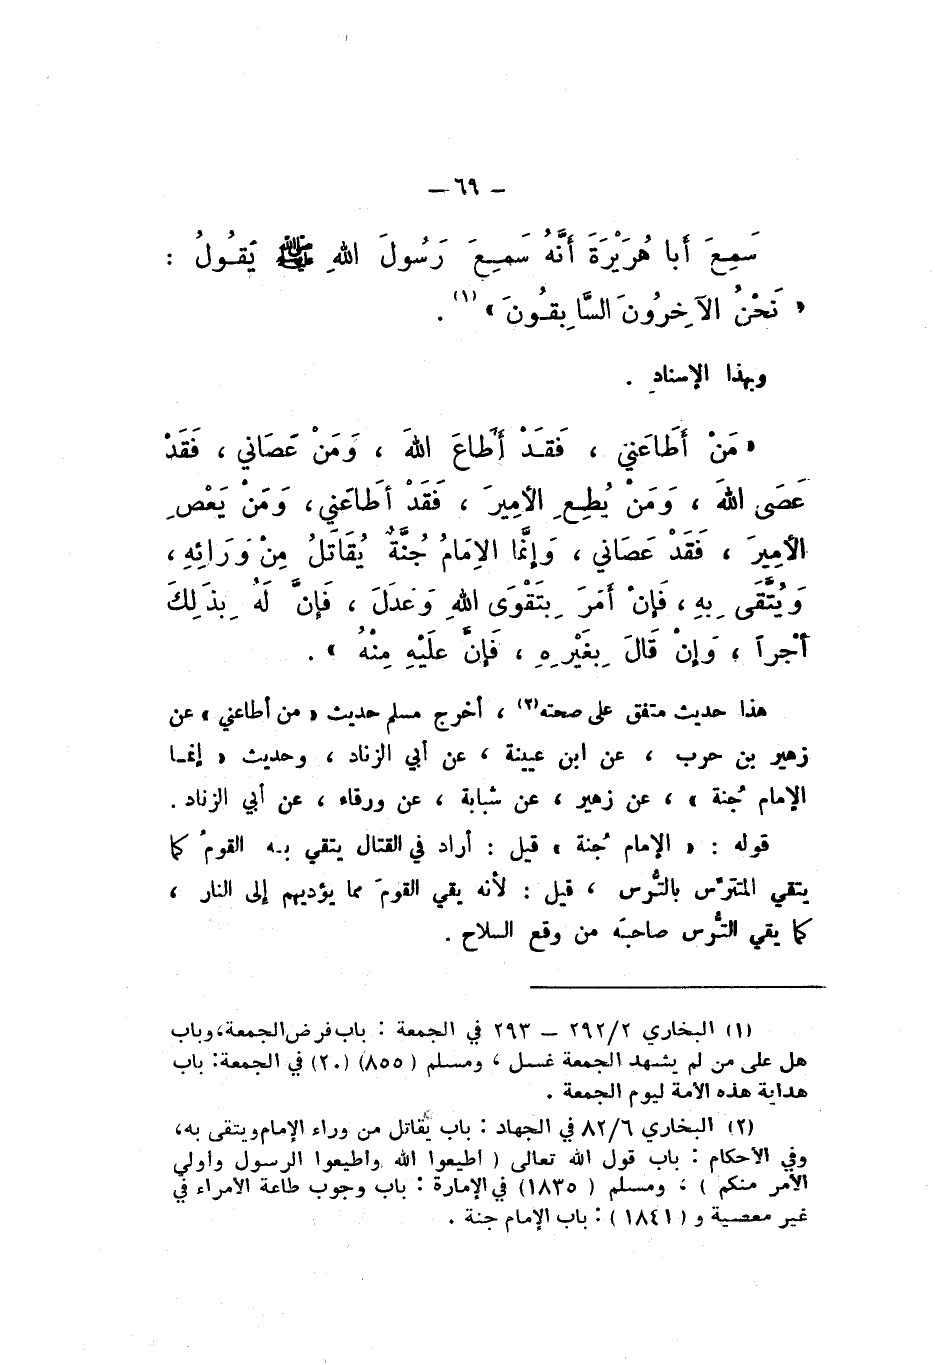 ـ ٦٩ ـ
سَمِعَ أَبا هُرَيْرَةَ أَنَّهُ سَمِـعَ رَسُولَ اللهِ ﷺ يَقُـولُ :
« نَحْنُ الآخِرُونَ السَّابِقُونَ » (١) .
وبهذا الإسنادِ .
« مَنْ أَطَاعَنِي ، فَقَـدْ أَطَاعَ اللهَ ، وَمَنْ عَصَانِي ، فَقَدْ
عَصَى اللهَ ، وَمَنْ يُطِـعِ الأمِيرَ ، فَقَدْ أَطَاعَنِي ، وَمَنْ يَعْصِ
الأمِيرَ ، فَقَدْ عَصَانِي ، وَإنَّمَا الإمَامُ جُنَّةٌ يُقَاتَلُ مِنْ وَرَائِهِ ،
وَيُتَّقَى بِهِ ، فَإِنْ أَمَرَ بِتَقْوَى اللهِ وَعَدَلَ ، فَإِنَّ لَهُ بِذَلِكَ
أَجْراً ، وَإنْ قَالَ بِغَيْرِهِ ، فَإِنَّ عَلَيْهِ مِنْهُ » .
هذا حديث متفق على صحته(٢) ، أخرج مسلم حديث « من أطاعني » عن
زهير بن حرب ، عن ابن عيينة ، عن أبي الزناد ، وحديث « إنمـا
الإمام جُنة » ، عن زهير ، عن شبابة ، عن ورقاء ، عن أبي الزناد .
قوله : « الإمام جُنة » قيل : أراد في القتال يتقي بـه القومُ كما
يتقي المتترّس بالتُّرس ، قيل : لأنه يقي القومَ مما يؤديهم إلى النار ،
كما يقي التُّرس صاحبَه من وقع السلاح .
(١) البخاري ٢٩٢/٢ ـ ٢٩٣ في الجمعة : باب فرض الجمعة، وباب
هل على من لم يشهد الجمعة غسل ، ومسلم ( ٨٥٥) (٢٠) في الجمعة: باب
هداية هذه الأمة ليوم الجمعة .
(٢) البخاري ٨٢/٦ في الجهاد : باب يُقاتل من وراء الإمام ويتقى به،
وفي الأحكام : باب قول الله تعالى ( أطيعوا الله وأطيعوا الرسول وأولي
الأمر منكم ) ، ومسلم ( ١٨٣٥) في الإمارة : باب وجوب طاعة الأمراء في
غير معصية و ( ١٨٤١ ) : باب الإمام جنة .